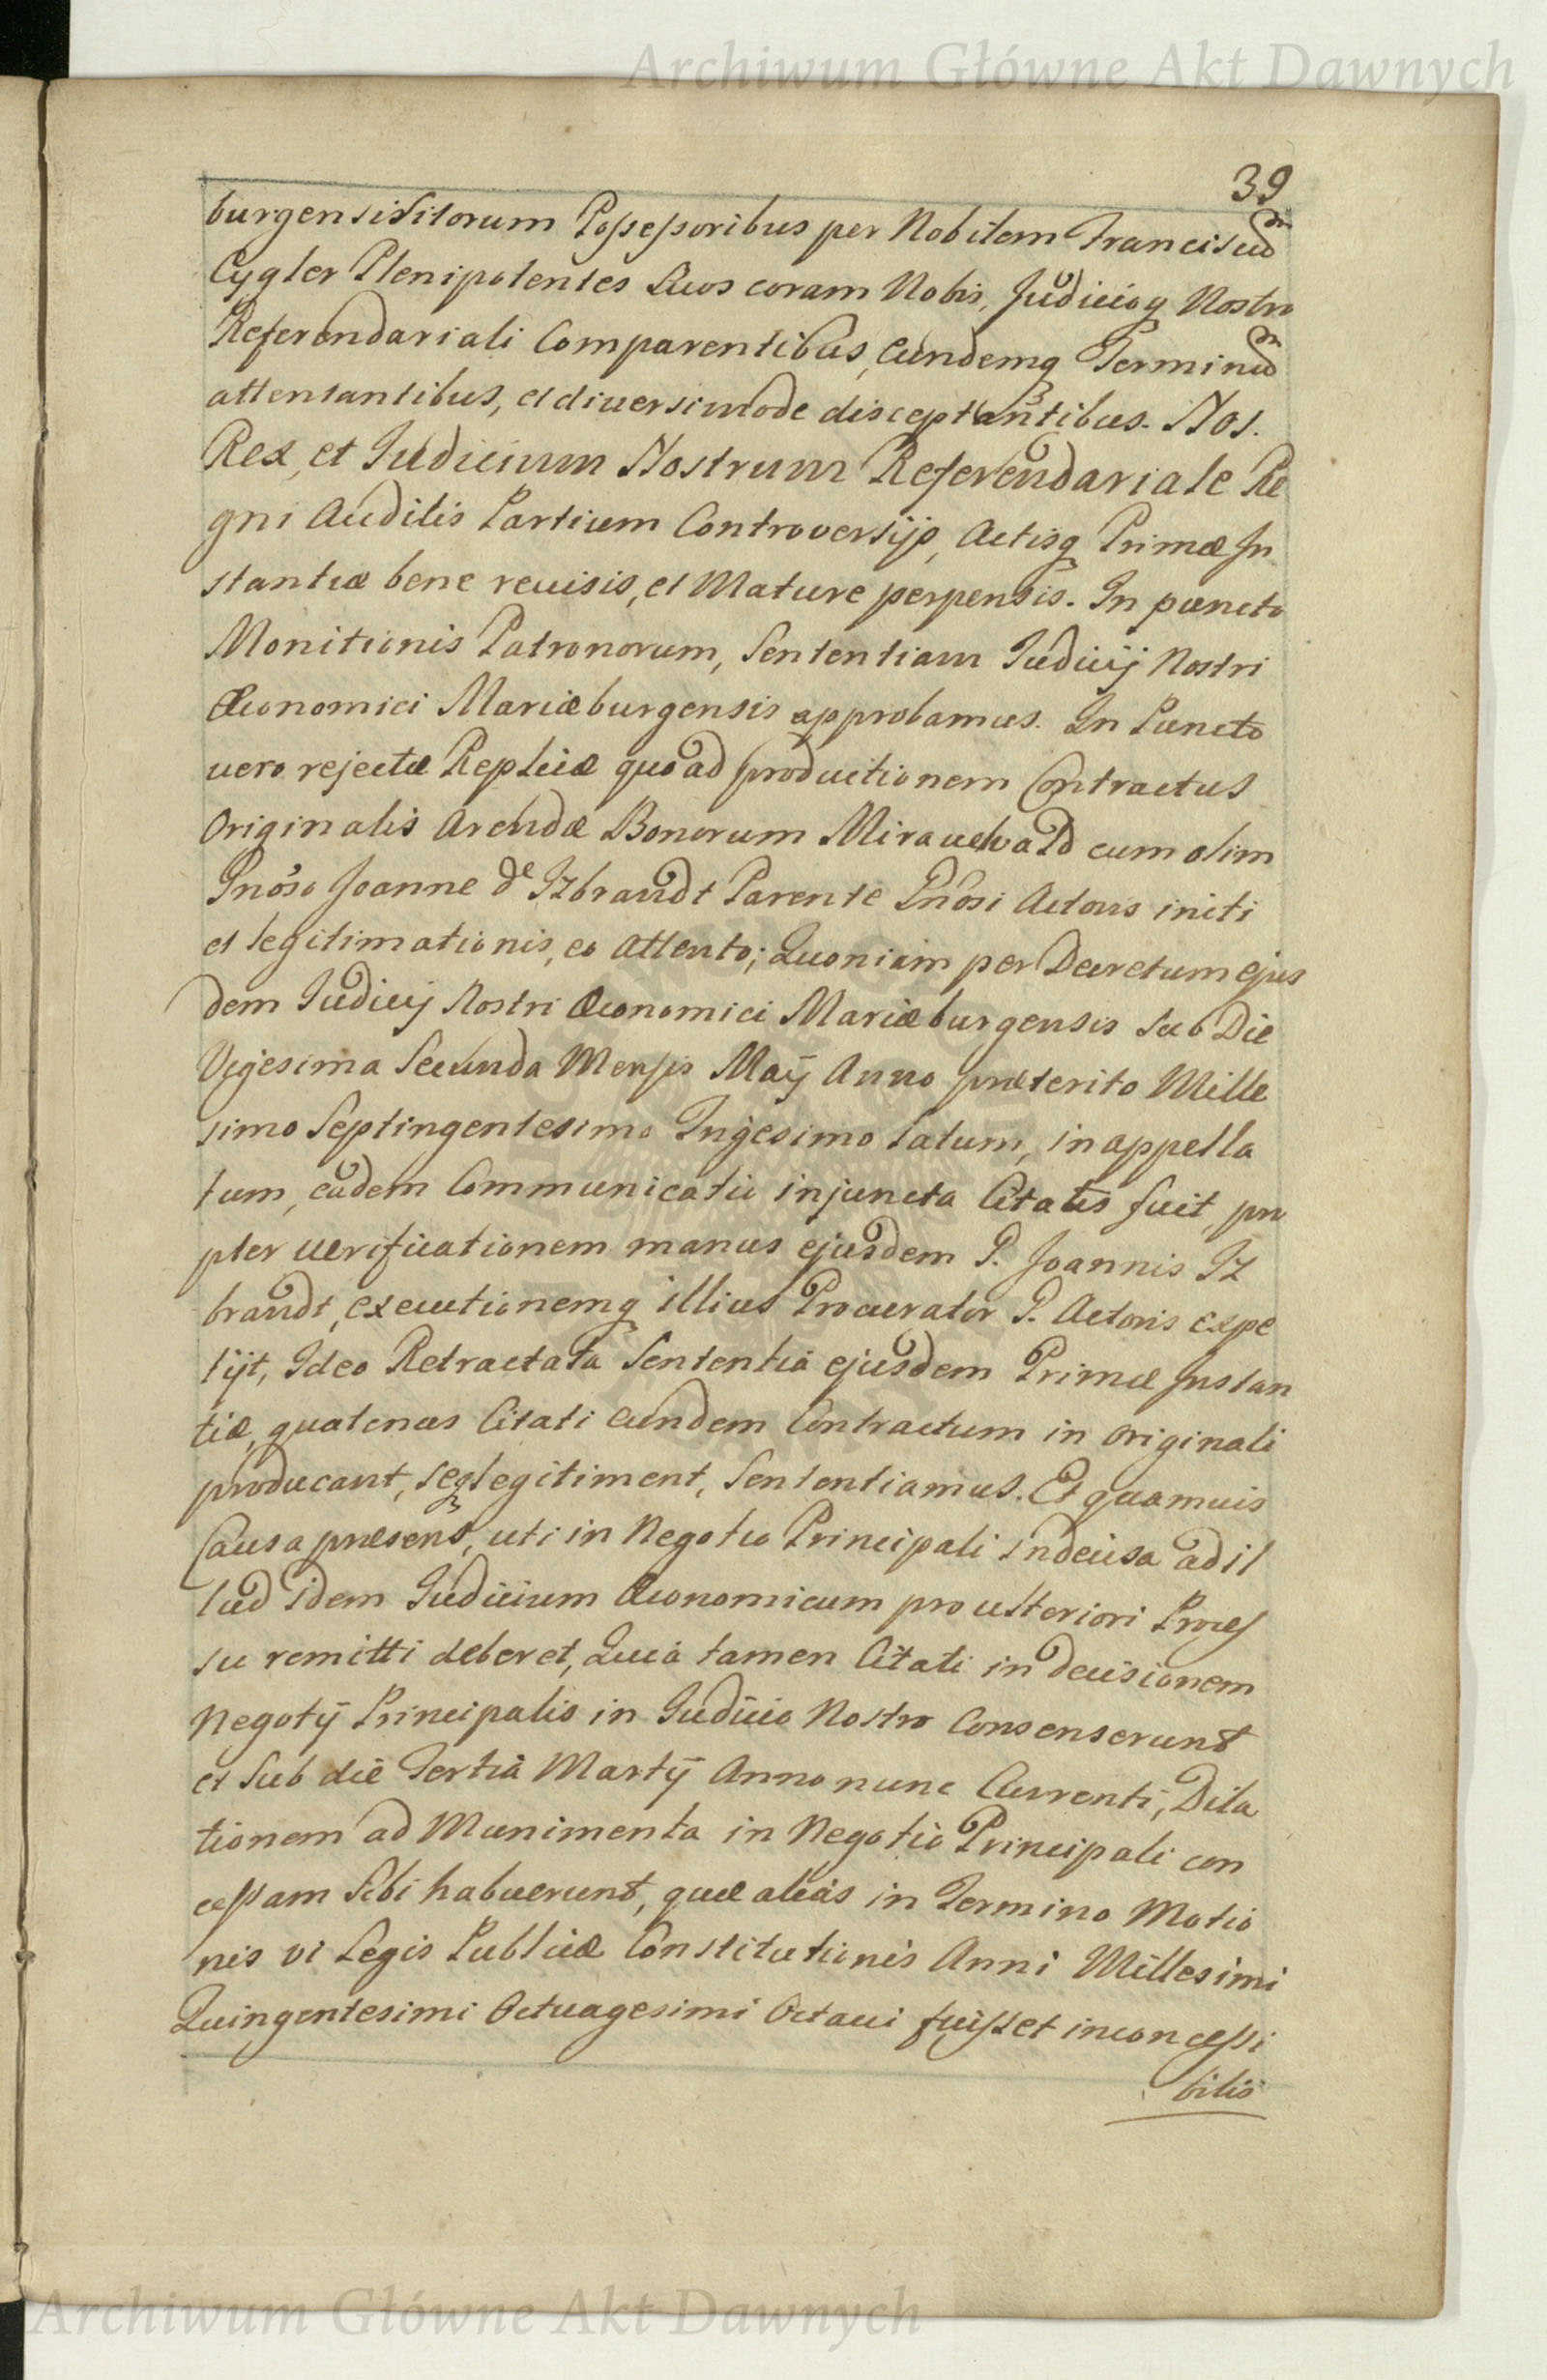 Archiwum Główne Akt Dawnych
39
burgensi Sitorum Possessoribus per Nobilem Franciscum
Cygler Plenipotentes Suos coram Nobis, Judicioq Nostro
Referendariali Comparentibus, Eundemq Terminum
attentantibus, et diversimode disceptantibus. Nos.
Rex, et Judicium Nostrum Referendariale Re
gni Auditis Partium Controversijs, Actisq Primæ In
stantiæ bene revisis, et Mature perpensis. In puncto
Monitionis Patronorum, Sententiam Judicij Nostri
Œconomici Mariæburgensis approbamus. In Puncto
vero rejectæ Replicæ quoad productionem Contractus
Originalis Arendæ Bonorum Mirauchvald cum olim
Gnoso Joanne de Izbrandt Parente Gnosi Actoris initi
et legitimationis, eo attento; Quoniam per Decretum ejus
dem Judicij Nostri Œconomici Mariæburgensis Sub Die
Vigesima Secunda Mensis Maij Anno præterito Mille
simo Septingentesimo Trigesimo latum, inappella
tum, eadem Communicatio injuncta Citatis fuit, pro
pter verificationem manus ejusdem G. Joannis Iz
brandt, executionemq illius Procurator G. Actoris expe
tijt, Ideo Retractata Sententia ejusdem Primæ Instan
tiæ, quatenus Citati eundem Contractum in originali
producant, seq legitiment, Sententiamus. Et quamvis
Causa præsens, uti in Negotio Principali Indecisa ad il
lud idem Judicium Œconomicum pro ulteriori Proces
su remitti deberet, Quia tamen Citati in decisionem
Negotij Principalis in Judicio Nostro Consenserunt
et Sub die Tertia Martij Anno nunc Currenti, Dila
tionem ad Munimenta in Negotio Principali con
cessam Sibi habuerunt, quæ alias in Termino Motio
nis vi Legis Publicæ Constitutionis Anni Millesimi
Quingentesimi Octuagesimi Octavi fuisset inconcessi
bilis
Archiwum Główne Akt Dawnych